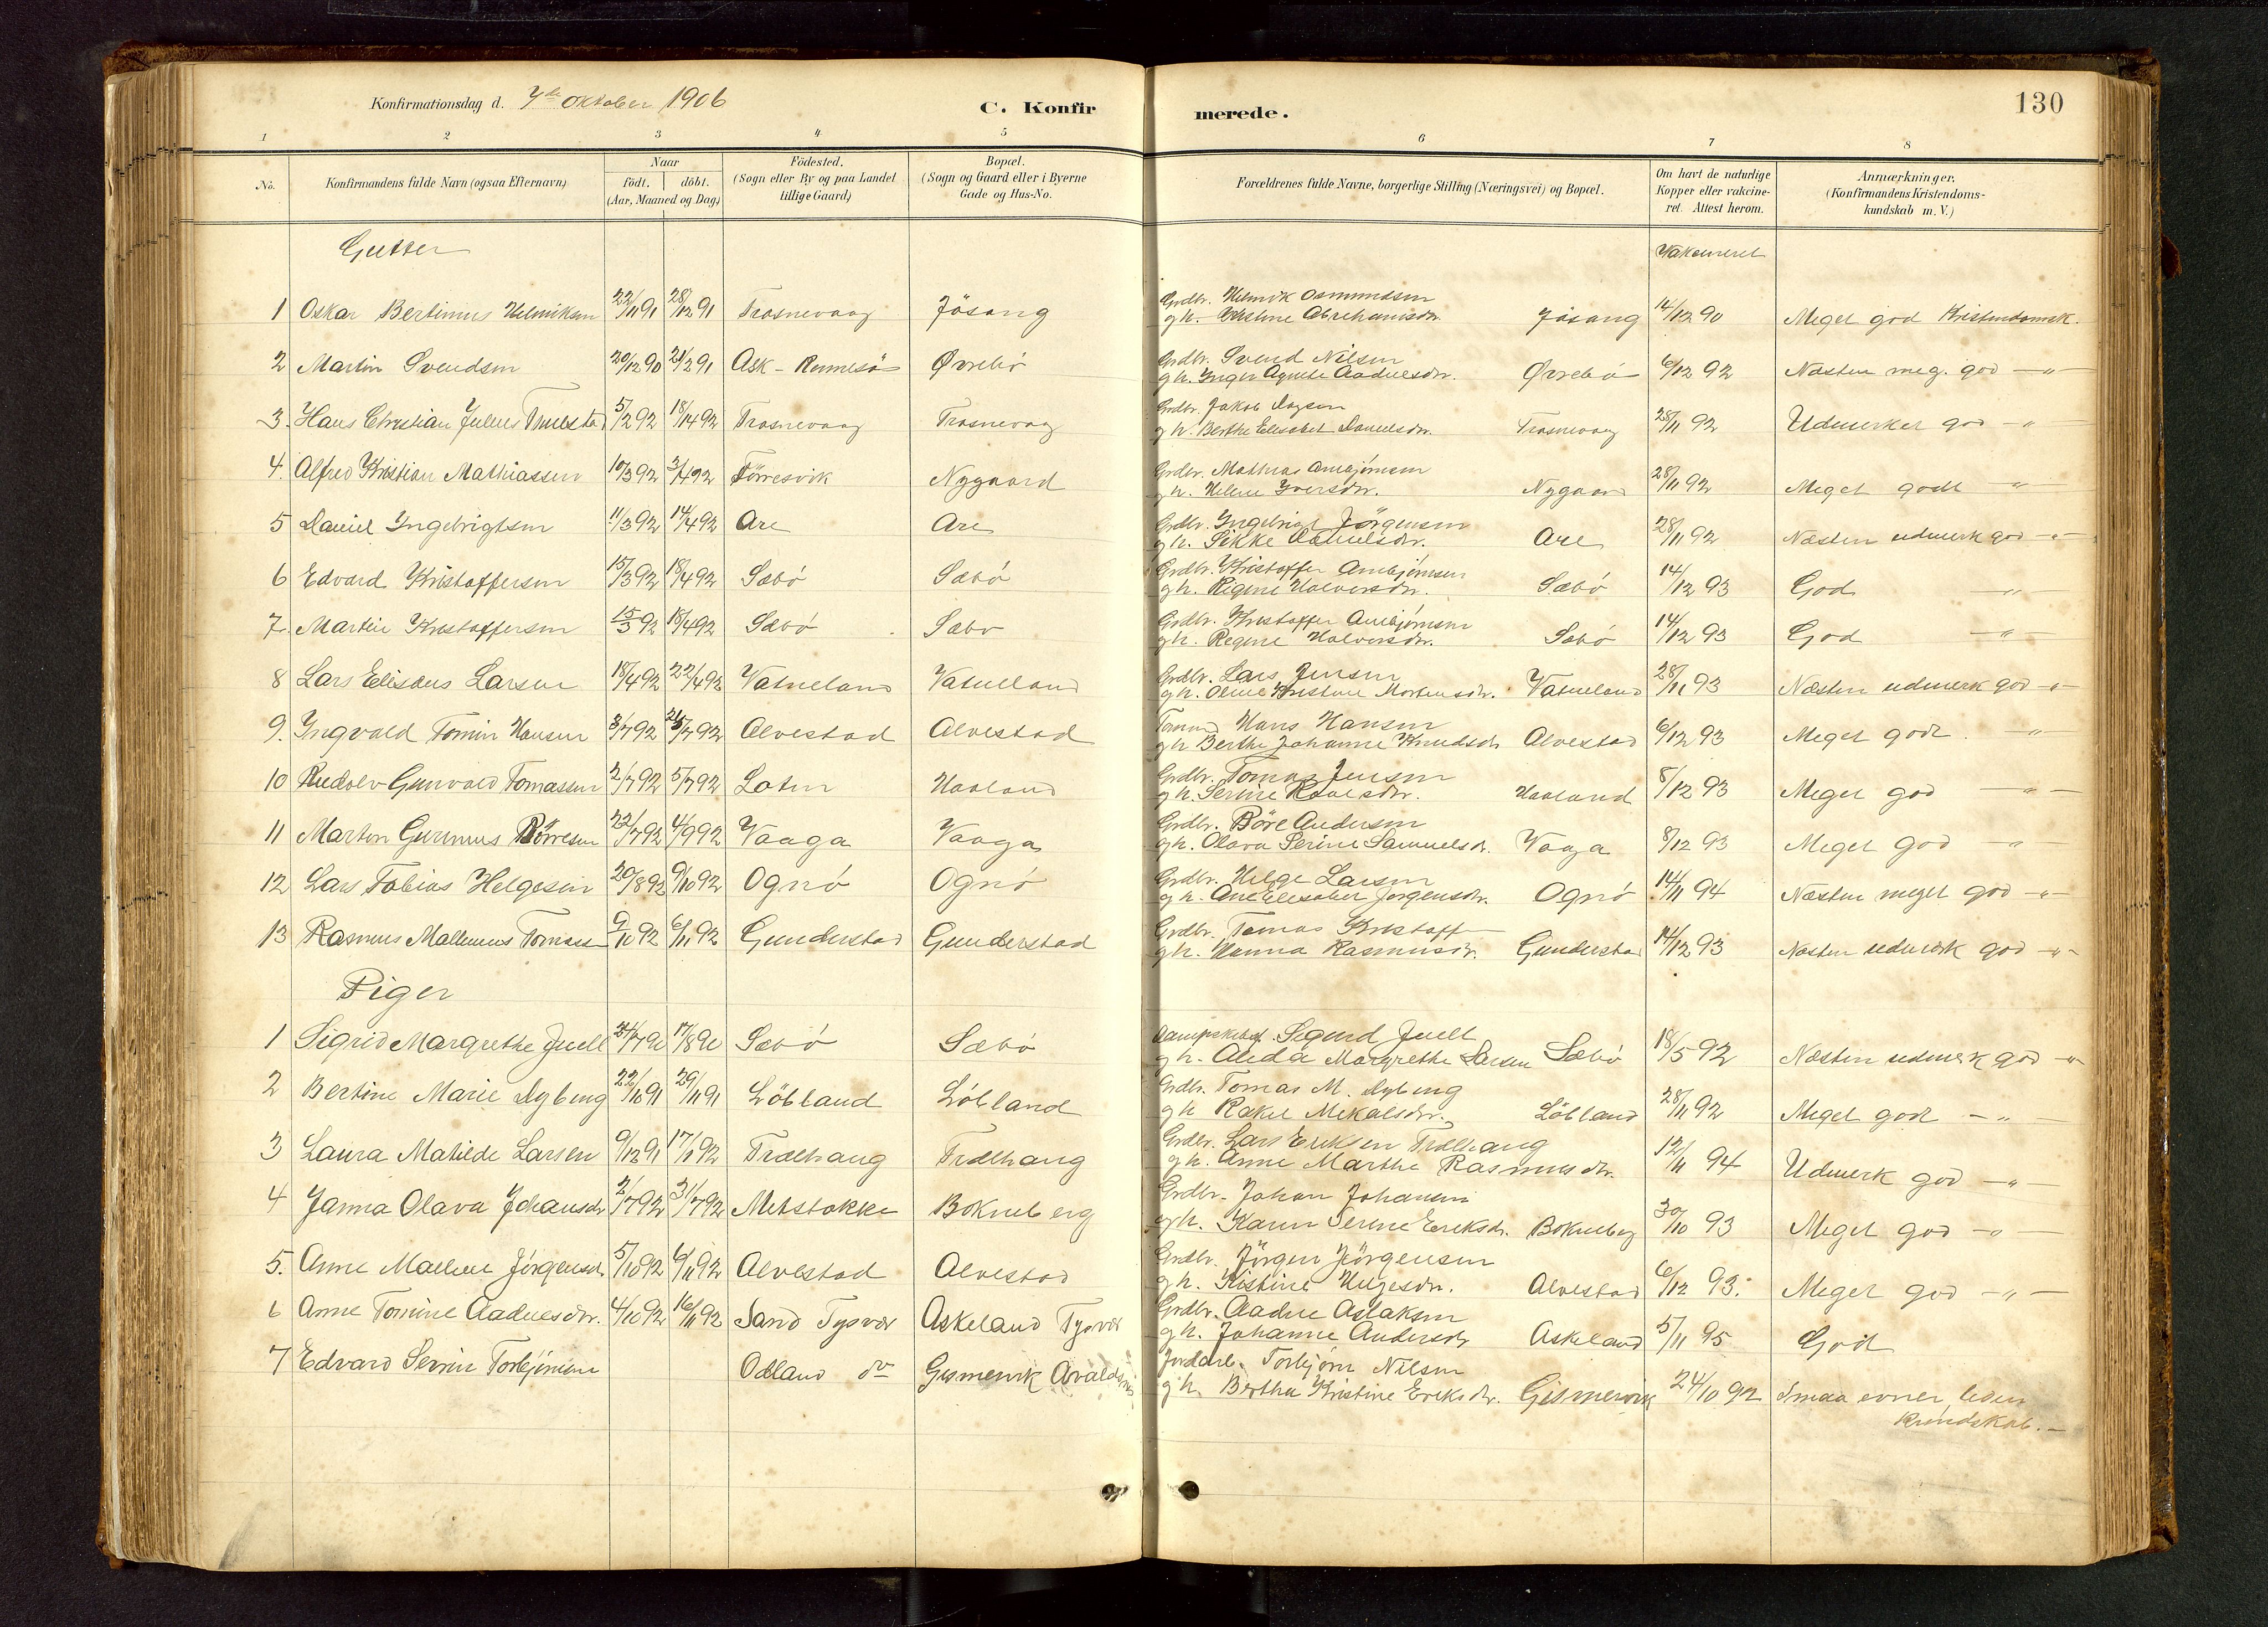 Konfirmationsdag d. 7de Oktober 1906
C. Konfirmerede.
130
1 2 3 4 5 6 7 8
No. Konfirmandens fulde Navn (ogsaa Efternavn) Naar födt. döbt. (Aar, Maaned og Dag) Födested. (Sogn eller By og paa Landet tillige Gaard) Bopæl. (Sogn og Gaard eller i Byerne Gade og Hus-No. Forældrenes fulde Navne, borgerlige Stilling (Næringsvei) og Bopæl. Om havt de naturlige Kopper eller vakcineret. Attest herom. Anmærkninger. (Konfirmandens Kristendomskundskab m. V.)
Gutter
1 Oskar Bertinius Helmiksen 22/11 91 28/12 91 Trosnevaag Jösang Grdbr. Helmik Osmundsen gh. Kristine Abrahamsdr. Jösang 14/12 90 Meget god Kristendomsk.
2 Martin Svendsen 20/12 90 21/2 91 Ask - Rennesö Øvrebö Grdbr. Svend Nilsen gh. Inger Agnete Aadnesdr. Øvrebö 6/12 92 Næsten meg. god -"-
3. Hans Christian Julius 5/2 92 18/4 92 Trosnevaag Trosnevag Grdbr. Jakob gh. Berthe Elisabet Danielsdr. Trosnevag 28/11 92 Udmerket god -"-
4. Alfred Kristian Mathiassen 10/3 92 3/4 92 Förresvik Nygaard Grdbr. Mathias Anbjörnsen gh. Helene Iversdr. Nygaard 28/11 92 Meget godt "
5 Daniel Ingebrigtsen 11/3 92 14/4 92 Are Are Grdbr. Ingebrigt Jörgensen gh. Sikke Danielsdr. Are 28/11 92 Næsten udmerk god -"-
6 Edvard Kristoffersen 15/3 92 18/4 92 Sæbö Sæbö Grdbr. Kristoffer Anbjörnsen gh. Regine Halvorsdr. Sæbö 14/12 93 God -"-
7. Martin Kristoffersen 15/3 92 18/4 92 Sæbö Sæbö Grdbr. Kristoffer Anbjörnsen gh. Regine Halvorsdr. Sæbö 14/12 93 God -"-
8 Lars Elisæus Larsen 18/4 92 22/4 92 Vatneland Vatneland Grdbr. Lars Jensen gh. Oline Kristine Mortensdr. Vatneland 28/11 93 Næsten udmerk god -"-
9. Ingvald Tomin Hansen 3/7 92 Alvestad Alvestad Hans Hansen gh Berthe Johanne Knudsdr Alvestad 6/12 93 Meget godt. "
10 Rudolv Gunvald Tomassen 2/7 92 5/7 92 Loten Haaland Grdbr. Tomas Jensen gh. Serine Hauland 8/12 93 Meget god -"-
11 Martin Gurinius Börresen 22/7 92 4/9 92 Vaaga Vaaga Grdbr. Böre Andersen gh. Olava Serine Samuelsdr. Vaaga 8/12 93 Meget god -"-
12 Lars Tobias Helgesen 20/8 92 9/10 92 Ognö Ognö Grdbr. Helge Larsen gh. Ane Elisabet Jörgensdr. Ognö 14/11 94 Næsten meget god -"-
13 Rasmus Mallenius Tomass 9/10 92 6/11 92 Gunderstad Gunderstad Grdbr. Tomas Kristoff gh. Hanna Rasmusdr. Gunderstad 14/12 93 Næsten udmerk god -"-
Piger
1 Sigrid Margrethe Juell 17/8 91 Sæbö Sæbö Sigurd Juell gh. Alida Margrethe Larsen Sæbö 18/5 92 Næsten udmerk god -"-
2 Bertine Marie Dybing 22/10 91 29/11 91 Löbland Löbland Grdbr. Tomas M. Dybing gh Rakel Mikalsdr. Löbland 28/11 92 Meget god -"-
3 Laura Matilde Larsen 9/12 91 17/1 92 Trælhaug Trælhaug Grdbr. Lars Eriksen Trælhaug gh. Anne Marthe Rasmusdr. 12/11 94 Udmerk god -"-
4 Janna Olava Johansdr 2/7 92 31/7 92 Metstokke Bokneberg Grdbr. Johan Johansen gh. Karen Serine Eriksdr. Bokneberg 30/10 93 Meget god -"-
5. Anne Mallene Jörgensdr 5/10 92 6/11 92 Alvestad Alvestad Grdbr. Jörgen Jörgensen gh. Kistine Helgesdr. Alvestad 6/12 93. Meget god -"-
6 Anne Tomine Aadnesdr. 4/10 92 16/11 92 Sand Tysvær Askeland Tysvær Grdbr. Aadne Aslaksen gh. Johanne Andersdr Askeland 5/11 95 God
7 Edvard Serin Torbjörnsen Odland do Gismervik Avaldsnes Jordarb. Torbjörn Nilsen gh. Bertha Kristine Eriksdr. Gismervik 24/10 92 Smaa evner, liden Kundskab. -